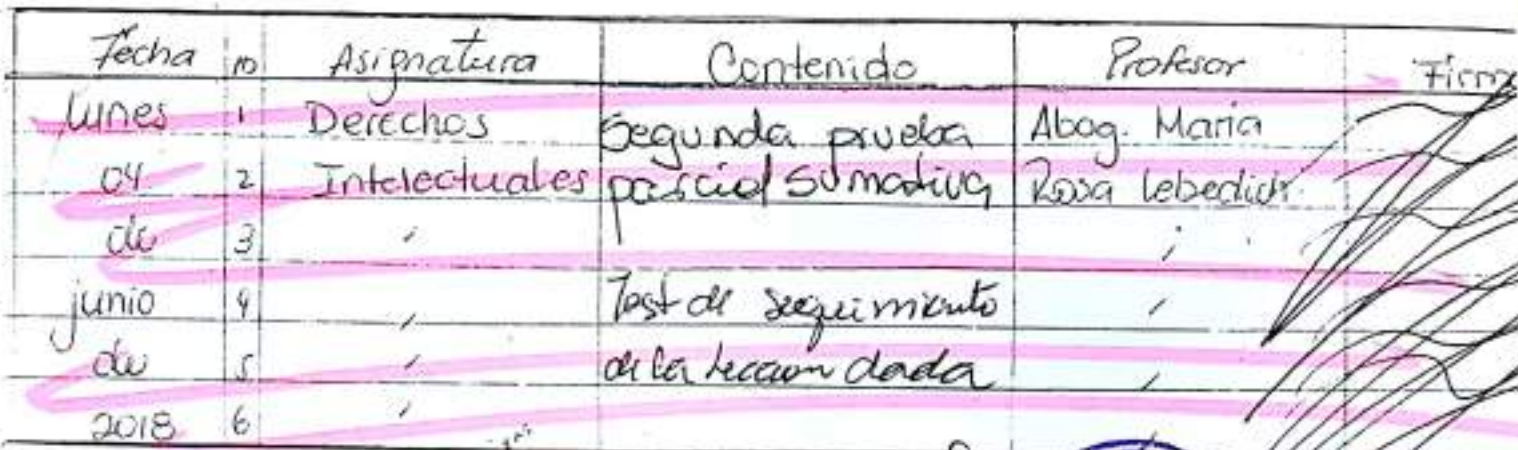 Fecha nº Asignatura Contenido Profesor Firma
lunes 1 Derechos Segunda prueba Abog. Maria
04 2 Intelectuales parcial sumativa Rosa Lebedich
de 3 " "
junio 4 " Test de seguimiento "
de 5 " de la leccion dada "
2018 6 "